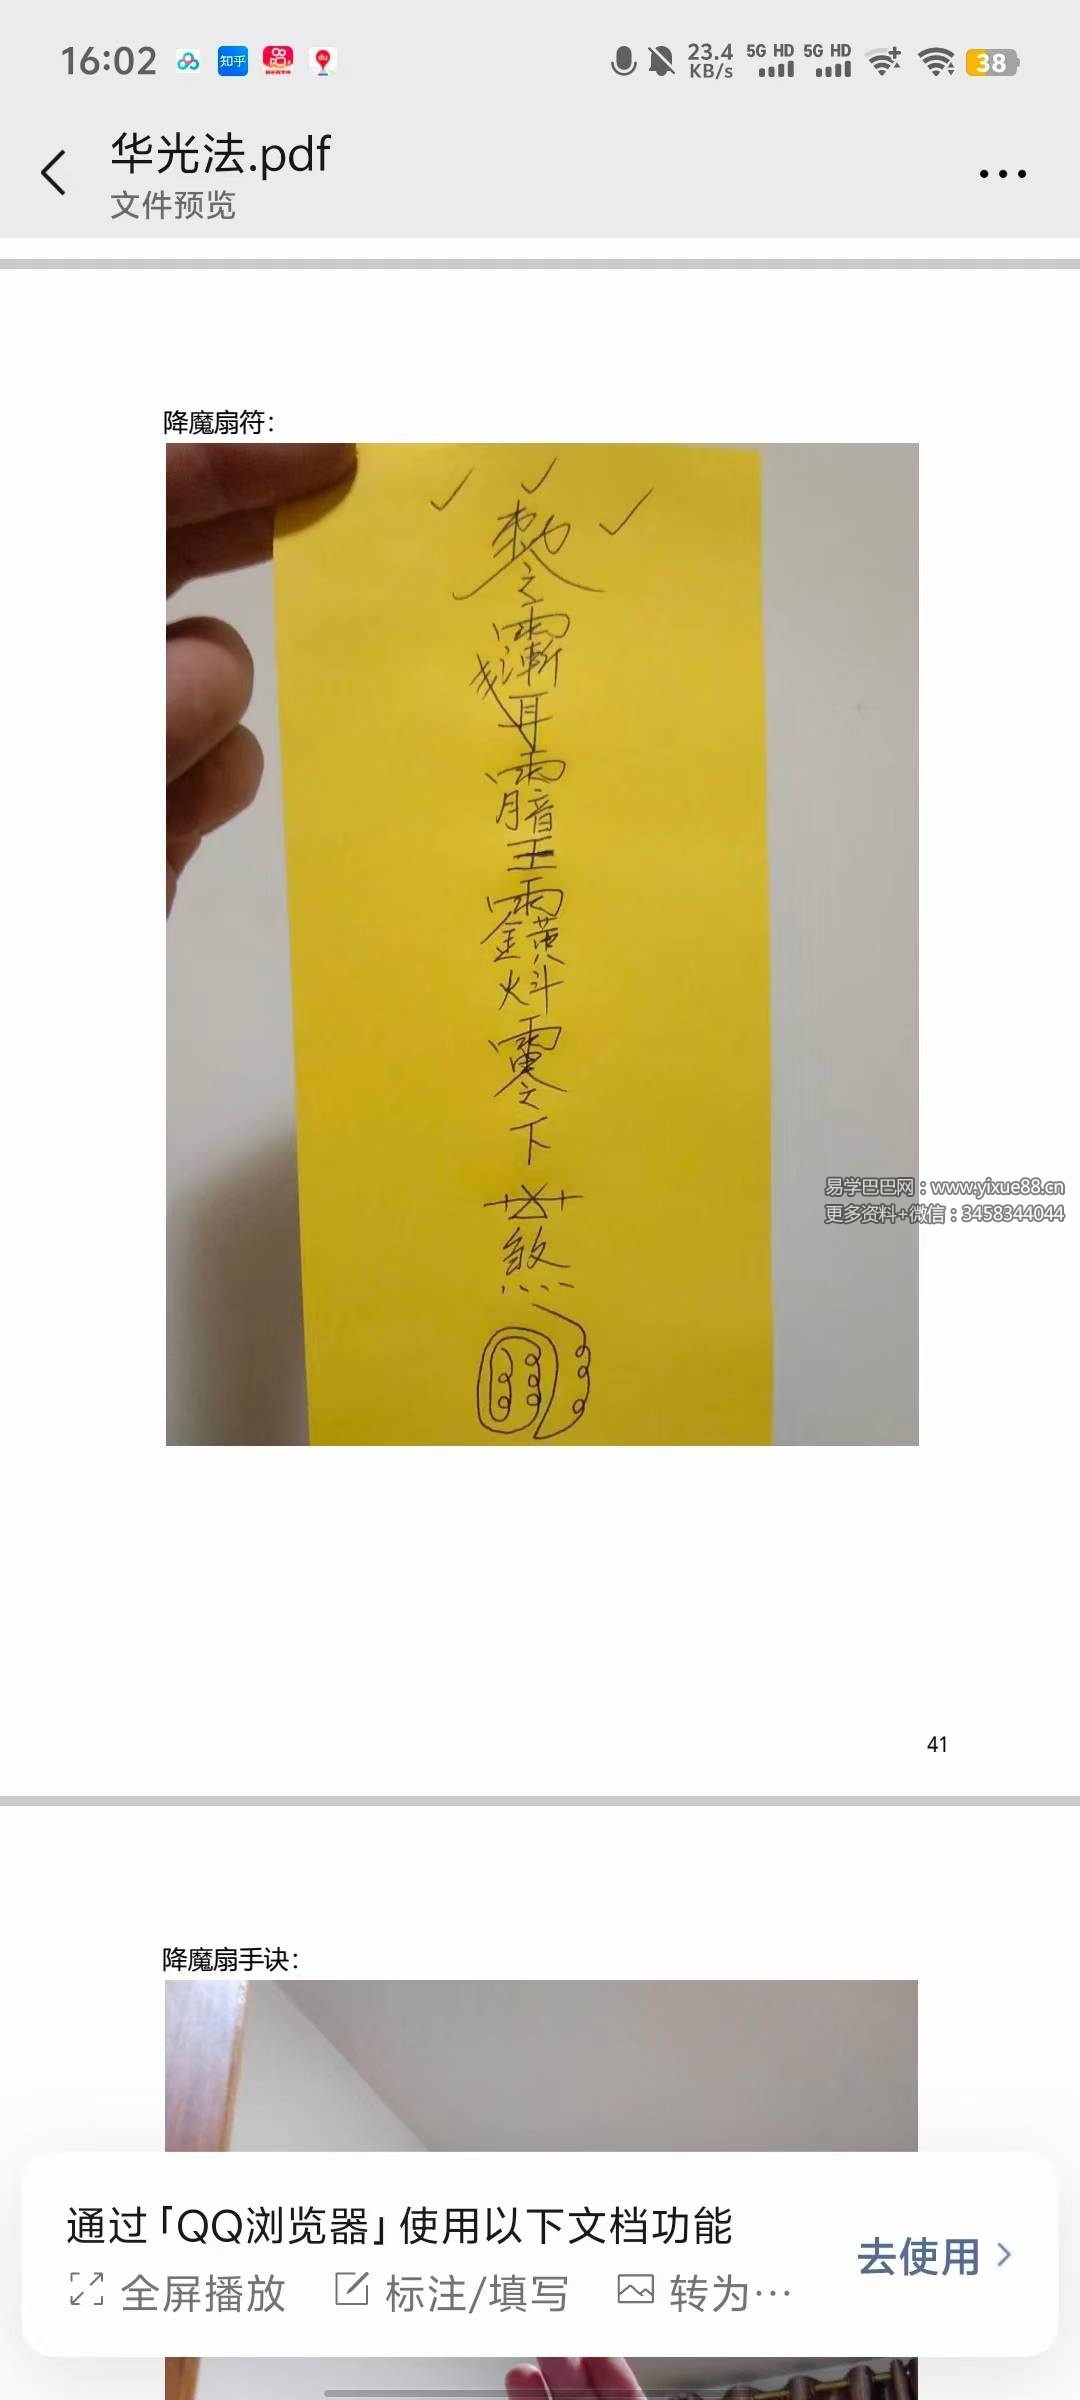 16:02
知乎
23.4 KB/s
5G HD 5G HD
38
华光法.pdf
文件预览
降魔扇符：
下
煞
易学巴巴网：www.yixue88.cn
更多资料+微信：3458344044
41
降魔扇手诀：
通过「QQ浏览器」使用以下文档功能
去使用
全屏播放 标注/填写 转为…